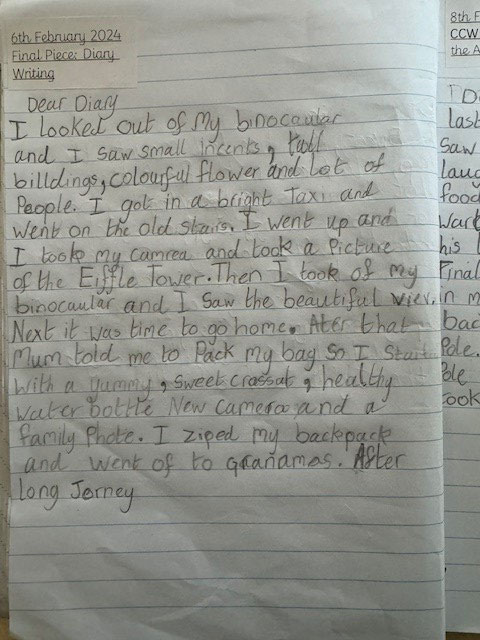 6th February 2024
Final Piece: Diary
Writing
Dear Diary
I looked out of My binocaular
and I saw small incents, tall
billdings, colourful flower and lot of
People. I got in a bright Taxi and
went on the old stairs. I went up and
I took my camrea and took a Picture
of the Eiffle Tower. Then I took of my
binocaular and I saw the beautiful view.
Next it was time to go home. Ater that
Mum told me to Pack my bag So I Start
with a yummy, sweet crassat, healthy
water bottle New Camera and a
family Phote. I ziped my backpack
and went of to granamas. After
long Jerney
8th F
CCW
the A
D
last
Saw
laug
food
his
Final
in m
bac
Pole.
ook